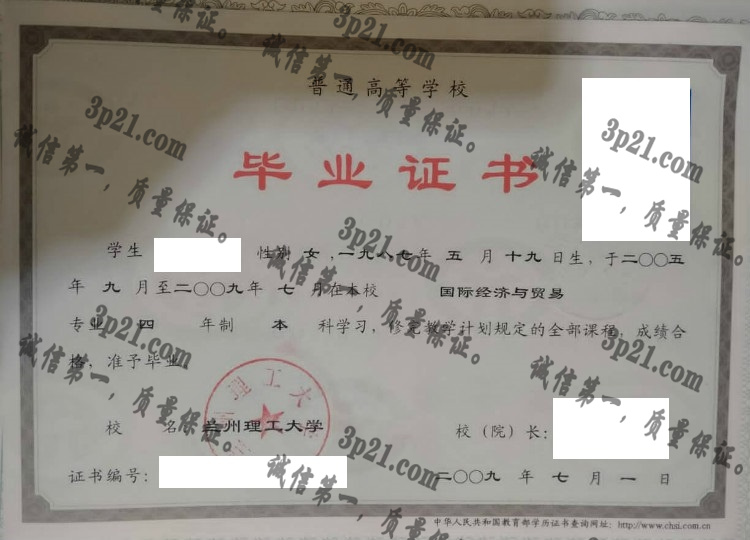 普通高等学校
毕业证书
学生 性别 女，一九八七年 五 月 十九 日生，于二〇〇五
年 九 月至二〇〇九年 七 月在本校 国际经济与贸易
专业 四 年制 本 科学习，修完教学计划规定的全部课程，成绩合
格，准予毕业
校 名：兰州理工大学 校（院）长：
证书编号： 二〇〇九 年 七 月 一 日
中华人民共和国教育部学历证书查询网址：http://www.chsi.com.cn
3p21.com
诚信第一，质量保证。
3p21.com
诚信第一，质量保证。
3p21.com
诚信第一，质量保证。
3p21.com
诚信第一，质量保证。
3p21.com
诚信第一，质量保证。
3p21.com
诚信第一，质量保证。
3p21.com
诚信第一，质量保证。